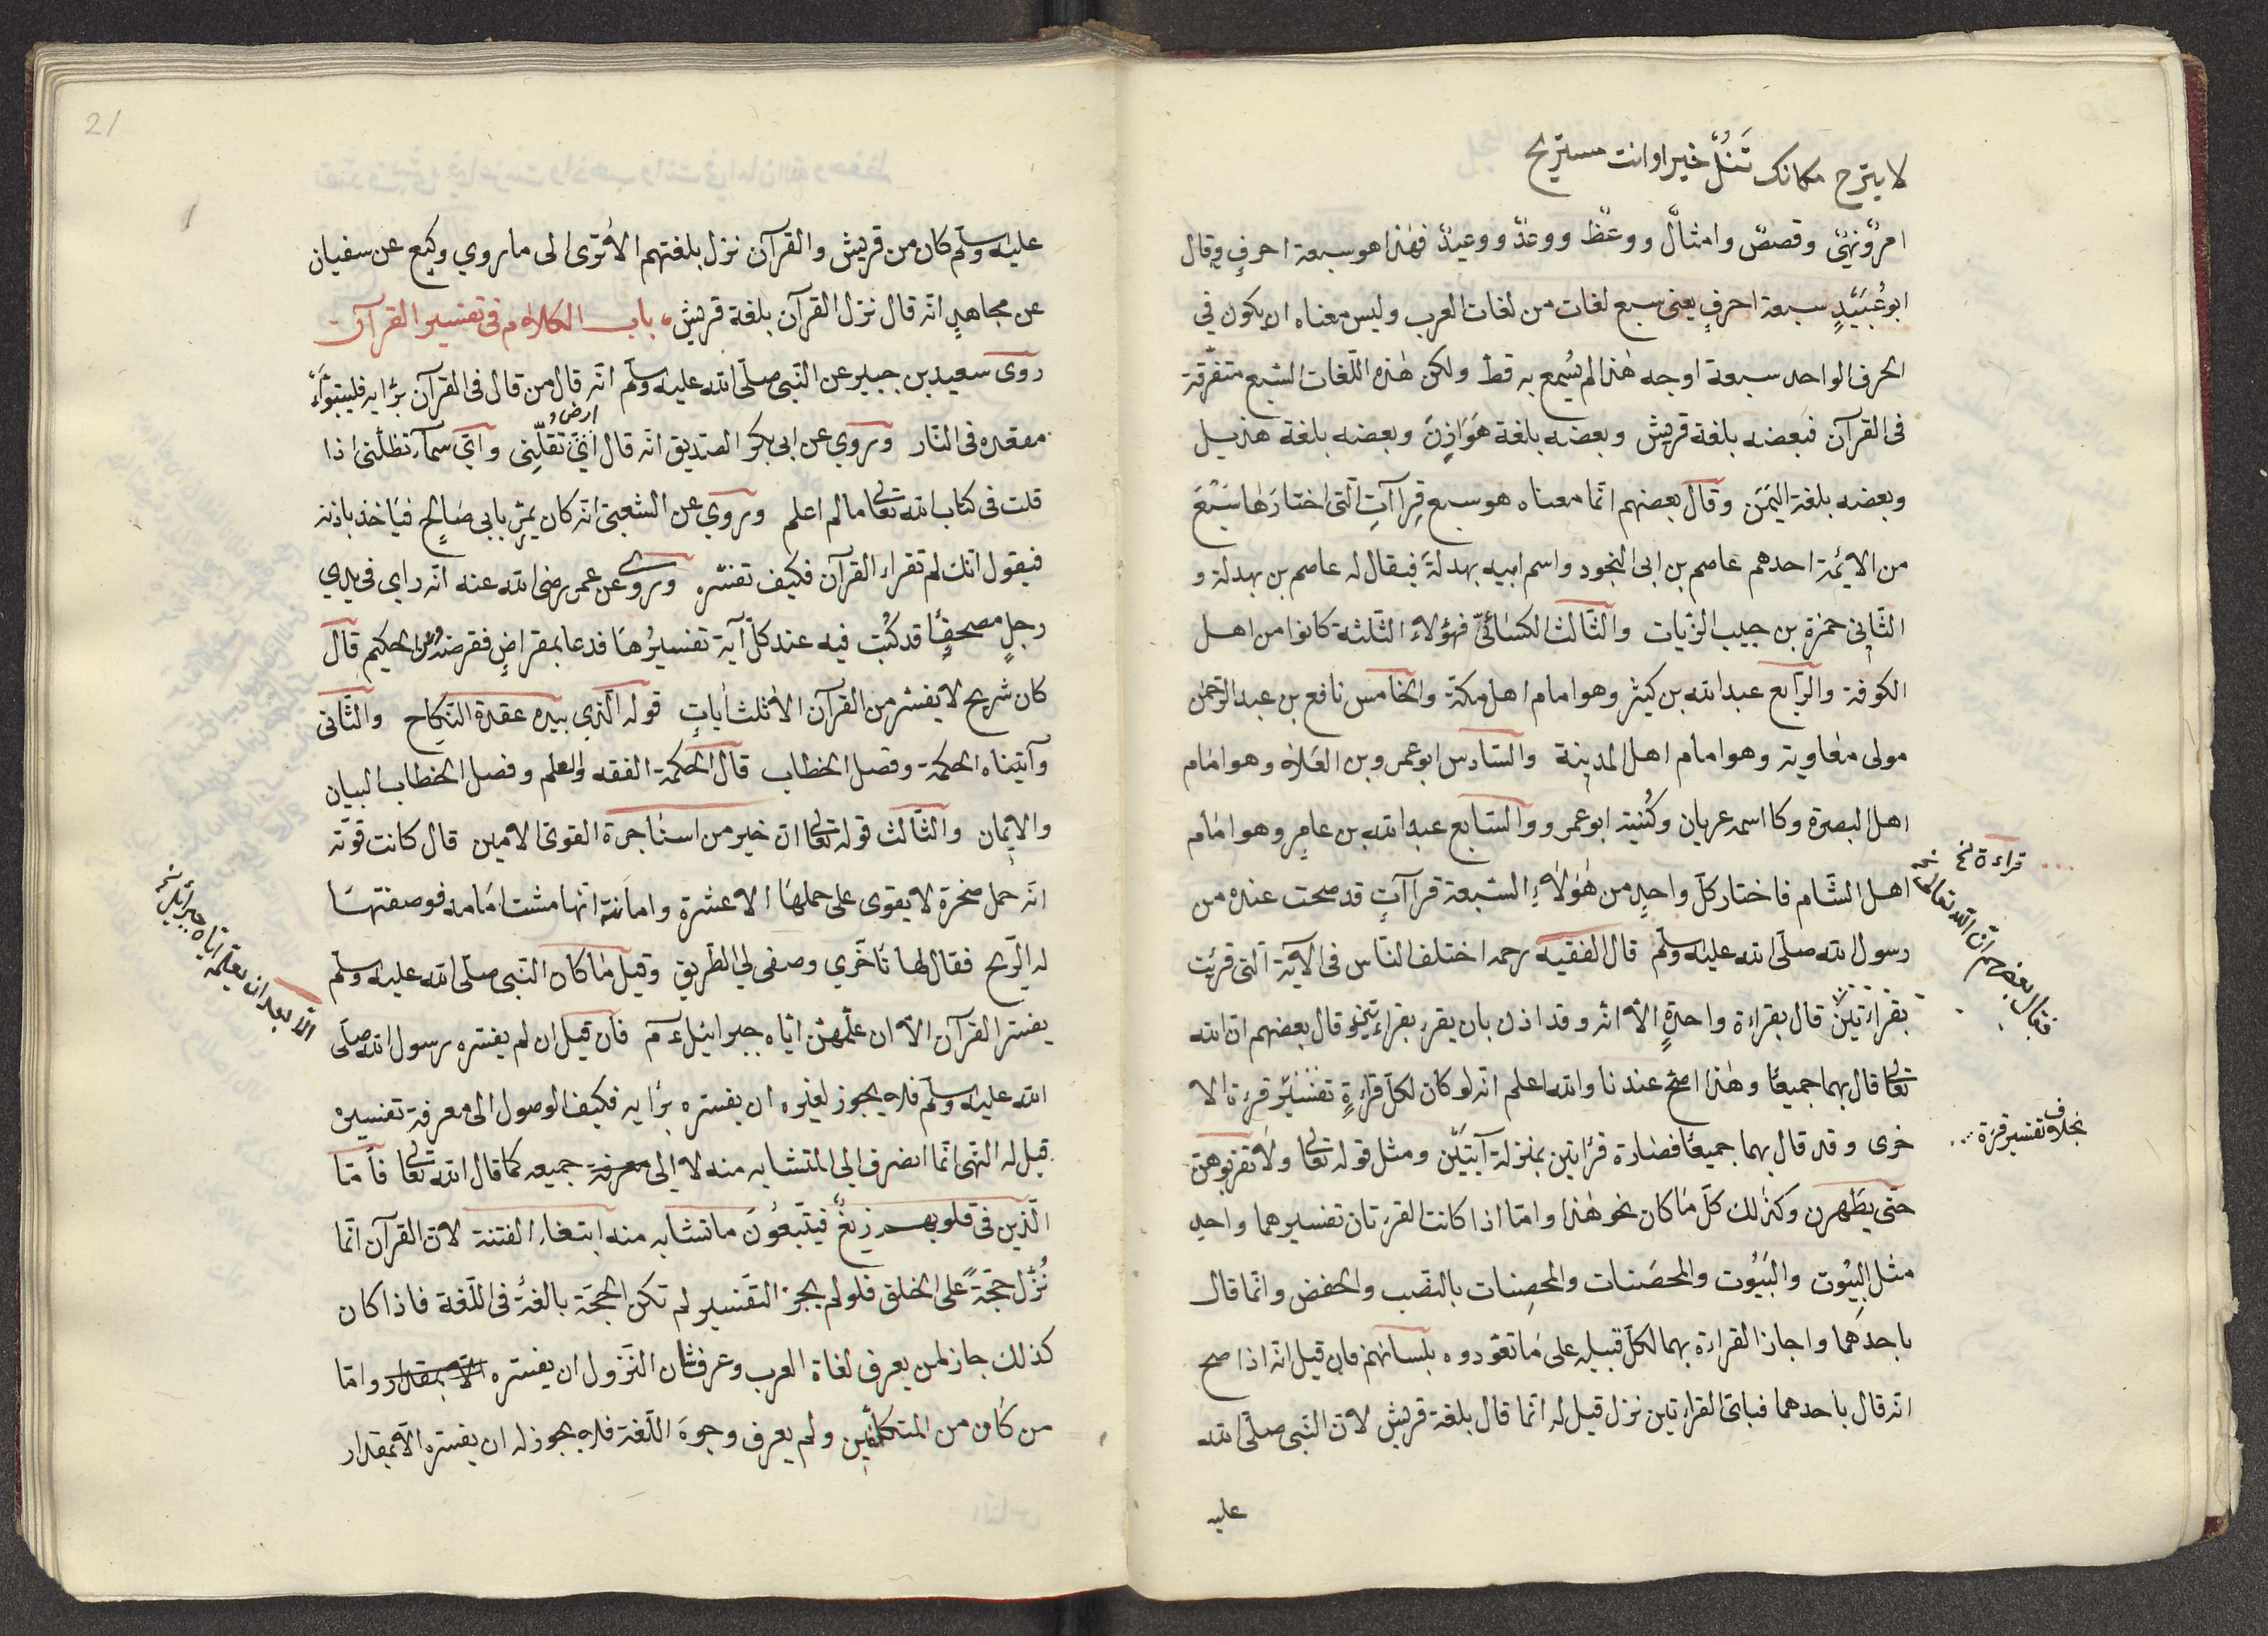 لا يترح مكانك تَنُلْ خيرا وانت مستريح
امرٌ ونهىٌ وقصصٌ وامثالٌ ووعظٌ ووعدٌ ووعيدٌ فهٰذا هو سبعة احرفٍ وقال
ابو عُبَيَدٍ سبعة احرفٍ يعنى سبع لغات من لغات العرب وليس معناه ان يكون في
الحرف الواحد سبعة اوجه هٰذا لم يُسمع به قطّ ولكن هٰذه اللّغات السّبع متفرّقة
فى القرآن فبعضه بلغة قريش وبعضه بلغة هَوَازِنَ وبعضه بلغة هذيل
وبعضه بلغة اليَمَن وقال بعضهم انّما معناه هو سبع قِراآتِ الّتى اختارَها سَبْعَ
من الائمة احدهم عاصم بن ابى النجود واسم ابيه بهدلة فيقال له عاصم بن بهدلة و
الثّانى حمزة بن حبيب الزّيات والثّالث الكسائىّ فهؤلاء الثّلثة كانوا من اهل
الكوفة والرّابع عبد الله بن كيثر وهو امام اهل مكّة والخامس نافع بن عبد الرّحمٰن
مولى معٰاوية وهو امام اهل المدينة والسّادس ابو عمرو بن العَلاء وهو امٰام
اهل البصرة وكا اسمه عريان وكُنيته ابو عمرو والسّابع عبد الله بن عامٍر وهو امٰام
اهل الشّام فاختار كلّ واحدٍ من هٰؤلاءِ السّبعة قراآتٍ قد صحت عنده من
رسول الله صلّى الله عليه وسلّم قال الفقيه رحمه اختلف النّاس فى الآية الّتى قرئت
بقراءتين قال بقراءة واحدةٍ الّا انّه وقد اذن بان يقرء بقراءتين وقال بعضهم انّ الله
تعالى قال بهما جميعًا وهٰذا اصّح عندنا والله اعلم انّه لو كان لكلّ قراءةٍ تفسيرٌ قرءة الا
خرى وقد قال بهما جميعًا فصارة قرٰاتين بمنزلة آيتيَن ومثل قوله تعالى ولا تقربوهنّ
حتّى يطّهرن وكذٰلك كلّ مٰا كان نحو هٰذا وامّا اذا كانت القرءتان تفسيرهما واحد
مثل البِيُوت والبَيُوت والمحصَنات والمحصِنات بالنصب والخفض وانّما قال
باحدَهما واجاز القراءة بهما لكلّ قبيله على مٰا تعوّدوه بلسٰانهم فان قيل انّه اذا صح
انّه قال بٰاحدهما فباىّ القراءتين نزل قيل له انّما قال بلغة قريش لانّ النّبى صلّى الله
عليه
قراءة نخ
فقال بعضهم انّ الله تعالى
بخلاف تفسير قرءة
21
عليه وسلّم كان من قريش والقرآن نزل بلغتهم الا ترى الى ما روي وكيع عن سفيان
عن مجاهدٍ انّه قال نزل القرآن بلغة قريش، باب الكلام فى تفسير القرآن
روى سعيد بن جبير عن النّبى صلّى الله عليه وسلّم انّه قال من قال فى القرآن برٔايه فليتبوّاءً
مقعده فى النّار وروي عن ابى بكر الصديق انّه قال اىّ تقلّنى واىّ سمآء تظلّنى اذا
ارض
قلت فى كتاب الله تعالى ما لم اعلم وروي عن الشعبىّ انّه كان يمرّ بابى صٰالحٍ فيٰاخذ باذنه
فيقول انّك لم تقراء القرآن فكيف تفسّره وروى عن عمر رضى الله عنه انّه راي فى يدي
رجلٍ مصحفًا قد كُتِب فيه عند كلّ آية تفسيرُها فدعا بمقراضٍ فقرضه وعن الحكيم قال
كان شريح لا يفسّر من القرآن الّا ثلث أياتٍ قوله الّذي بيده عقدة النّكاح والثّانى
وآتيناه الحكمة وفصل الخطاب قال الحكمة الفقه والعلم وفصل الخطاب البيان
والايمان والثّالث قوله تعالى انّ خير من استٰاجرة القوىّ الامين قال كانت قوّته
انّه حمل صخرة لا يقوى على حملهٰا الّا عشرة وامانته انّها مشت امٰامه فوصفتهٰا
له الرّيح فقال لها تٰاخّري وصفى لي الطّريق وقيل مٰا كان النّبى صلّى الله عليه وسلّم
يفسّر القرآن الّا ان علّمهنّ ايّاه جبرائيل ءم فان قيل ان لم يفسّره رسول الله صلّى
الله عليه وسلّم فلا يجوز لغيره ان يفسّره برٔايه فكيف الوصول الى معرفة تفسيره
قيل له النّهى انّما انصرف الى المتشابه منه لا الى معرفة جميعه كما قال الله تعالى فأمّا
الّذين فى قلوبهم زيغٌ فيتّبعُونَ ما تشابه منه ابتغاء الفتنة لانّ القرآن انّما
نُزّل حجّةً على الخلق فلو لم يجز التّفسير لم تكن الحجّة بالغةً فى اللّغة فاذا كان
كذلك جاز لمن يعرف لغاة العرب وعرف شان النّزول ان يفسّره الّا بمقدار وامّا
من كان من المتكلّفين ولم يعرف وجوهَ اللّغة فلا يجوز له ان يفسّره الّا بمقدار
الّا بعد ان يعلّمه ايّاه جبرائيل نخ